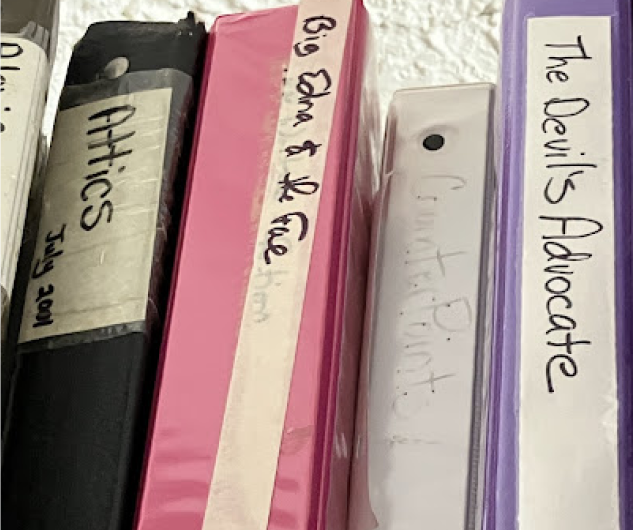 Attics
July 2001
Big Edna & the Fae
CounterPoints!
The Devil's Advocate